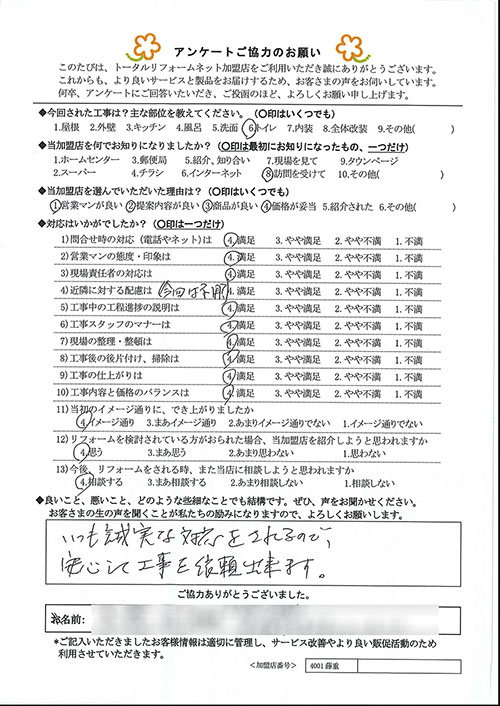 アンケートご協力のお願い
このたびは、トータルリフォームネット加盟店をご利用いただき誠にありがとうございます。
これからも、より良いサービスと製品をお届けするため、お客さまの声をお伺いしています。
何卒、アンケートにご回答いただき、ご投函のほど、よろしくお願い申し上げます。
◆今回された工事は?主な部位を教えてください。(〇印はいくつでも)
1.屋根 2.外壁 3.キッチン 4.風呂 5.洗面 6.トイレ 7.内装 8.全体改装 9.その他( )
◆当加盟店を何でお知りになりましたか?(〇印は最初にお知りになったもの、一つだけ)
1.ホームセンター 3.郵便局 5.紹介、知り合い 7.現場を見て 9.タウンページ
2.スーパー 4.チラシ 6.インターネット 8.訪問を受けて 10.その他( )
◆当加盟店を選んでいただいた理由は?(〇印はいくつでも)
1.営業マンが良い 2.提案内容が良い 3.商品が良い 4.価格が妥当 5.紹介された 6.その他( )
◆対応はいかがでしたか?(〇印は一つだけ)
1)問合せ時の対応(電話やネット)は 4.満足 3.やや満足 2.やや不満 1.不満
2)営業マンの態度・印象は 4.満足 3.やや満足 2.やや不満 1.不満
3)現場責任者の対応は 4.満足 3.やや満足 2.やや不満 1.不満
4)近隣に対する配慮は 今回は不明 4.満足 3.やや満足 2.やや不満 1.不満
5)工事中の工程進捗の説明は 4.満足 3.やや満足 2.やや不満 1.不満
6)工事スタッフのマナーは 4.満足 3.やや満足 2.やや不満 1.不満
7)現場の整理・整頓は 4.満足 3.やや満足 2.やや不満 1.不満
8)工事後の後片付け、掃除は 4.満足 3.やや満足 2.やや不満 1.不満
9)工事の仕上がりは 4.満足 3.やや満足 2.やや不満 1.不満
10)工事内容と価格のバランスは 4.満足 3.やや満足 2.やや不満 1.不満
11)当初のイメージ通りに、でき上がりましたか
4.イメージ通り 3.まあイメージ通り 2.あまりイメージ通りでない 1.イメージ通りでない
12)リフォームを検討されている方がおられた場合、当加盟店を紹介しようと思われますか
4.思う 3.まあ思う 2.あまり思わない 1.思わない
13)今後、リフォームをされる時、また当店に相談しようと思われますか
4.相談する 3.まあ相談する 2.あまり相談しない 1.相談しない
◆良いこと、悪いこと、どのような些細なことでも結構です。ぜひ、声をお聞かせください。
お客さまの生の声を聞くことが私たちの励みになりますので、よろしくお願いします。
いつも誠実な対応をされるので、
安心して工事を依頼出来ます。
ご協力ありがとうございました。
お名前:
*ご記入いただきましたお客様情報は適切に管理し、サービス改善やより良い販促活動のため
利用させていただきます。
<加盟店番号> 4001藤重